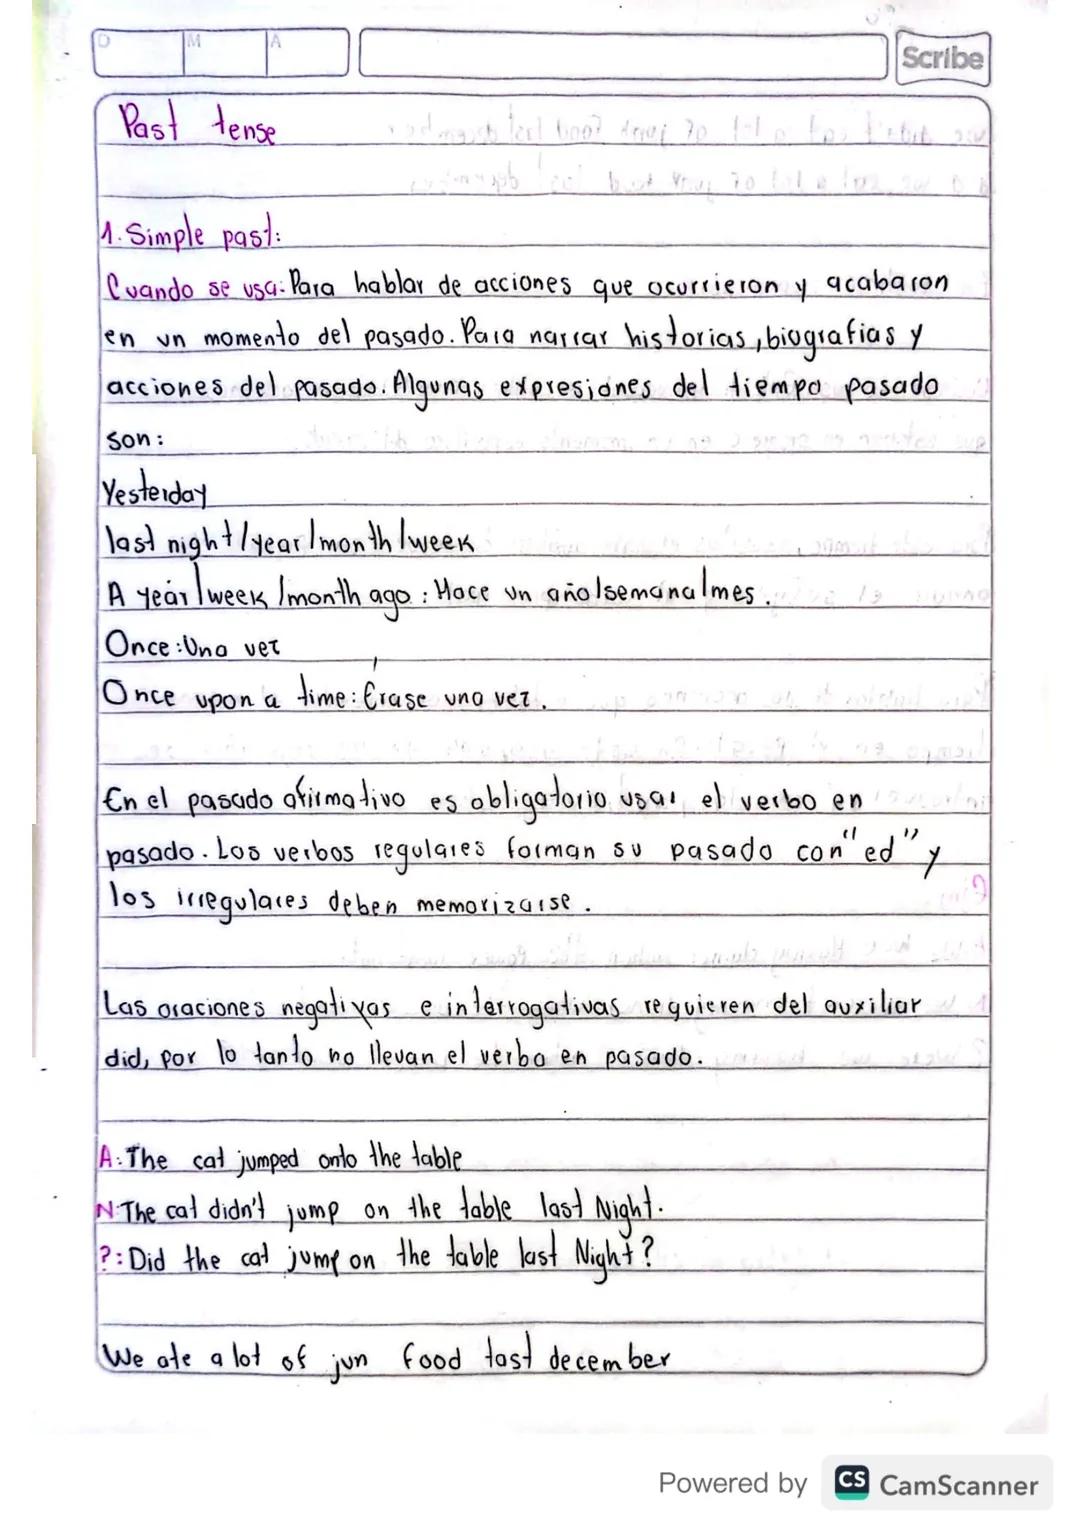 D M A
Scribe
Past tense
1. Simple past:
Cuando se usa: Para hablar de acciones que ocurrieron y acabaron
en un momento del pasado. Para narrar historias, biografias y
acciones del pasado. Algunas expresiones del tiempo pasado
son:
Yesterday
last night/year/month/week
A year/week/month ago: Hace un año/semana/mes.
Once: Una vez
Once upon a time: Érase una vez.
En el pasado afirmativo es obligatorio usar el verbo en
pasado. Los verbos regulares forman su pasado con "ed" y
los irregulares deben memorizarse.
Las oraciones negativas e interrogativas requieren del auxiliar
did, por lo tanto no llevan el verbo en pasado.
A: The cat jumped onto the table
N: The cat didn't jump on the table last Night.
?: Did the cat jump on the table last Night?
We ate a lot of jun food tast december
Powered by CS CamScanner